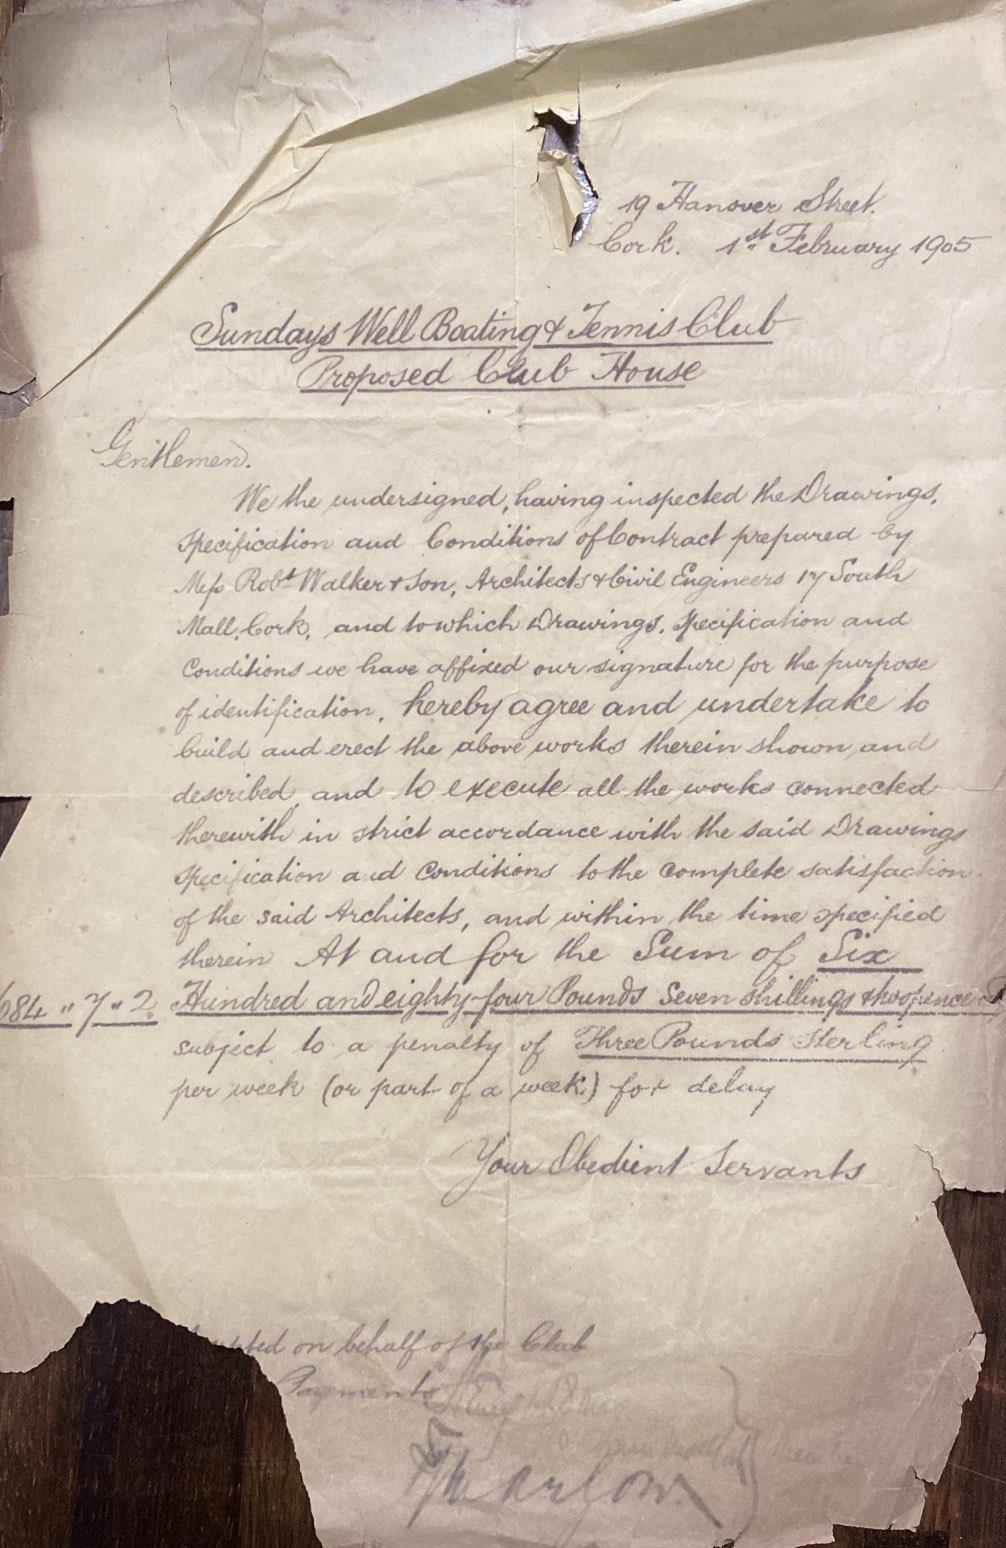 19 Hanover Street.
Cork. 1st February 1905
Sundays Well Boating & Tennis Club
Proposed Club House
Gentlemen.
We the undersigned, having inspected the Drawings,
Specification and Conditions of Contract prepared by
Mess Robt Walker & Son, Architects & Civil Engineers 17 South
Mall, Cork, and to which Drawings, Specification and
Conditions we have affixed our signature for the purpose
of identification, hereby agree and undertake to
build and erect the above works therein shown and
described, and to execute all the works connected
therewith in strict accordance with the said Drawings
Specification and Conditions to the complete satisfaction
of the said Architects, and within the time specified
therein At and for the Sum of Six
684 " 7 " 2 Hundred and eighty-four Pounds Seven shillings & twopence
subject to a penalty of Three Pounds Sterling
per week (or part of a week) for delay
Your Obedient Servants
on behalf of the Club
Payments